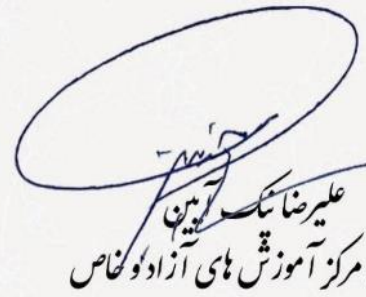 علیرضا نیک آیین
مرکز آموزش های آزاد و خاص